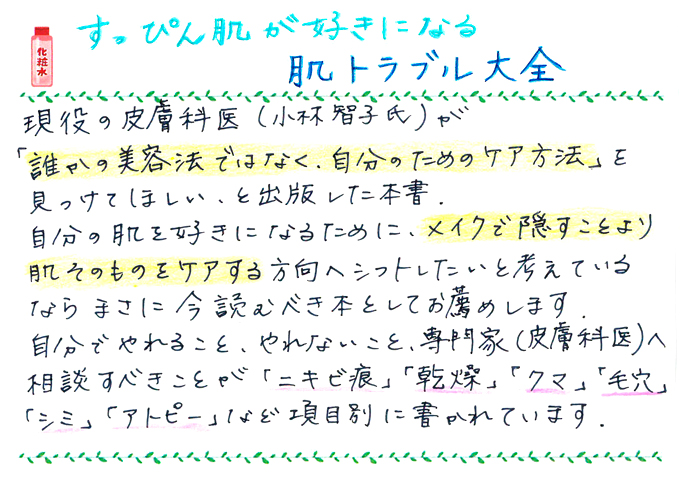 すっぴん肌が好きになる
肌トラブル大全
化粧水
現役の皮膚科医(小林智子氏)が
「誰かの美容法ではなく、自分のためのケア方法」を
見つけてほしい、と出版した本書.
自分の肌を好きになるために、メイクで隠すことより
肌そのものをケアする方向へシフトしたいと考えている
ならまさに今読むべき本としてお薦めします.
自分でやれること、やれないこと、専門家(皮膚科医)へ
相談すべきことが「ニキビ痕」「乾燥」「クマ」「毛穴」
「シミ」「アトピー」など項目別に書かれています.